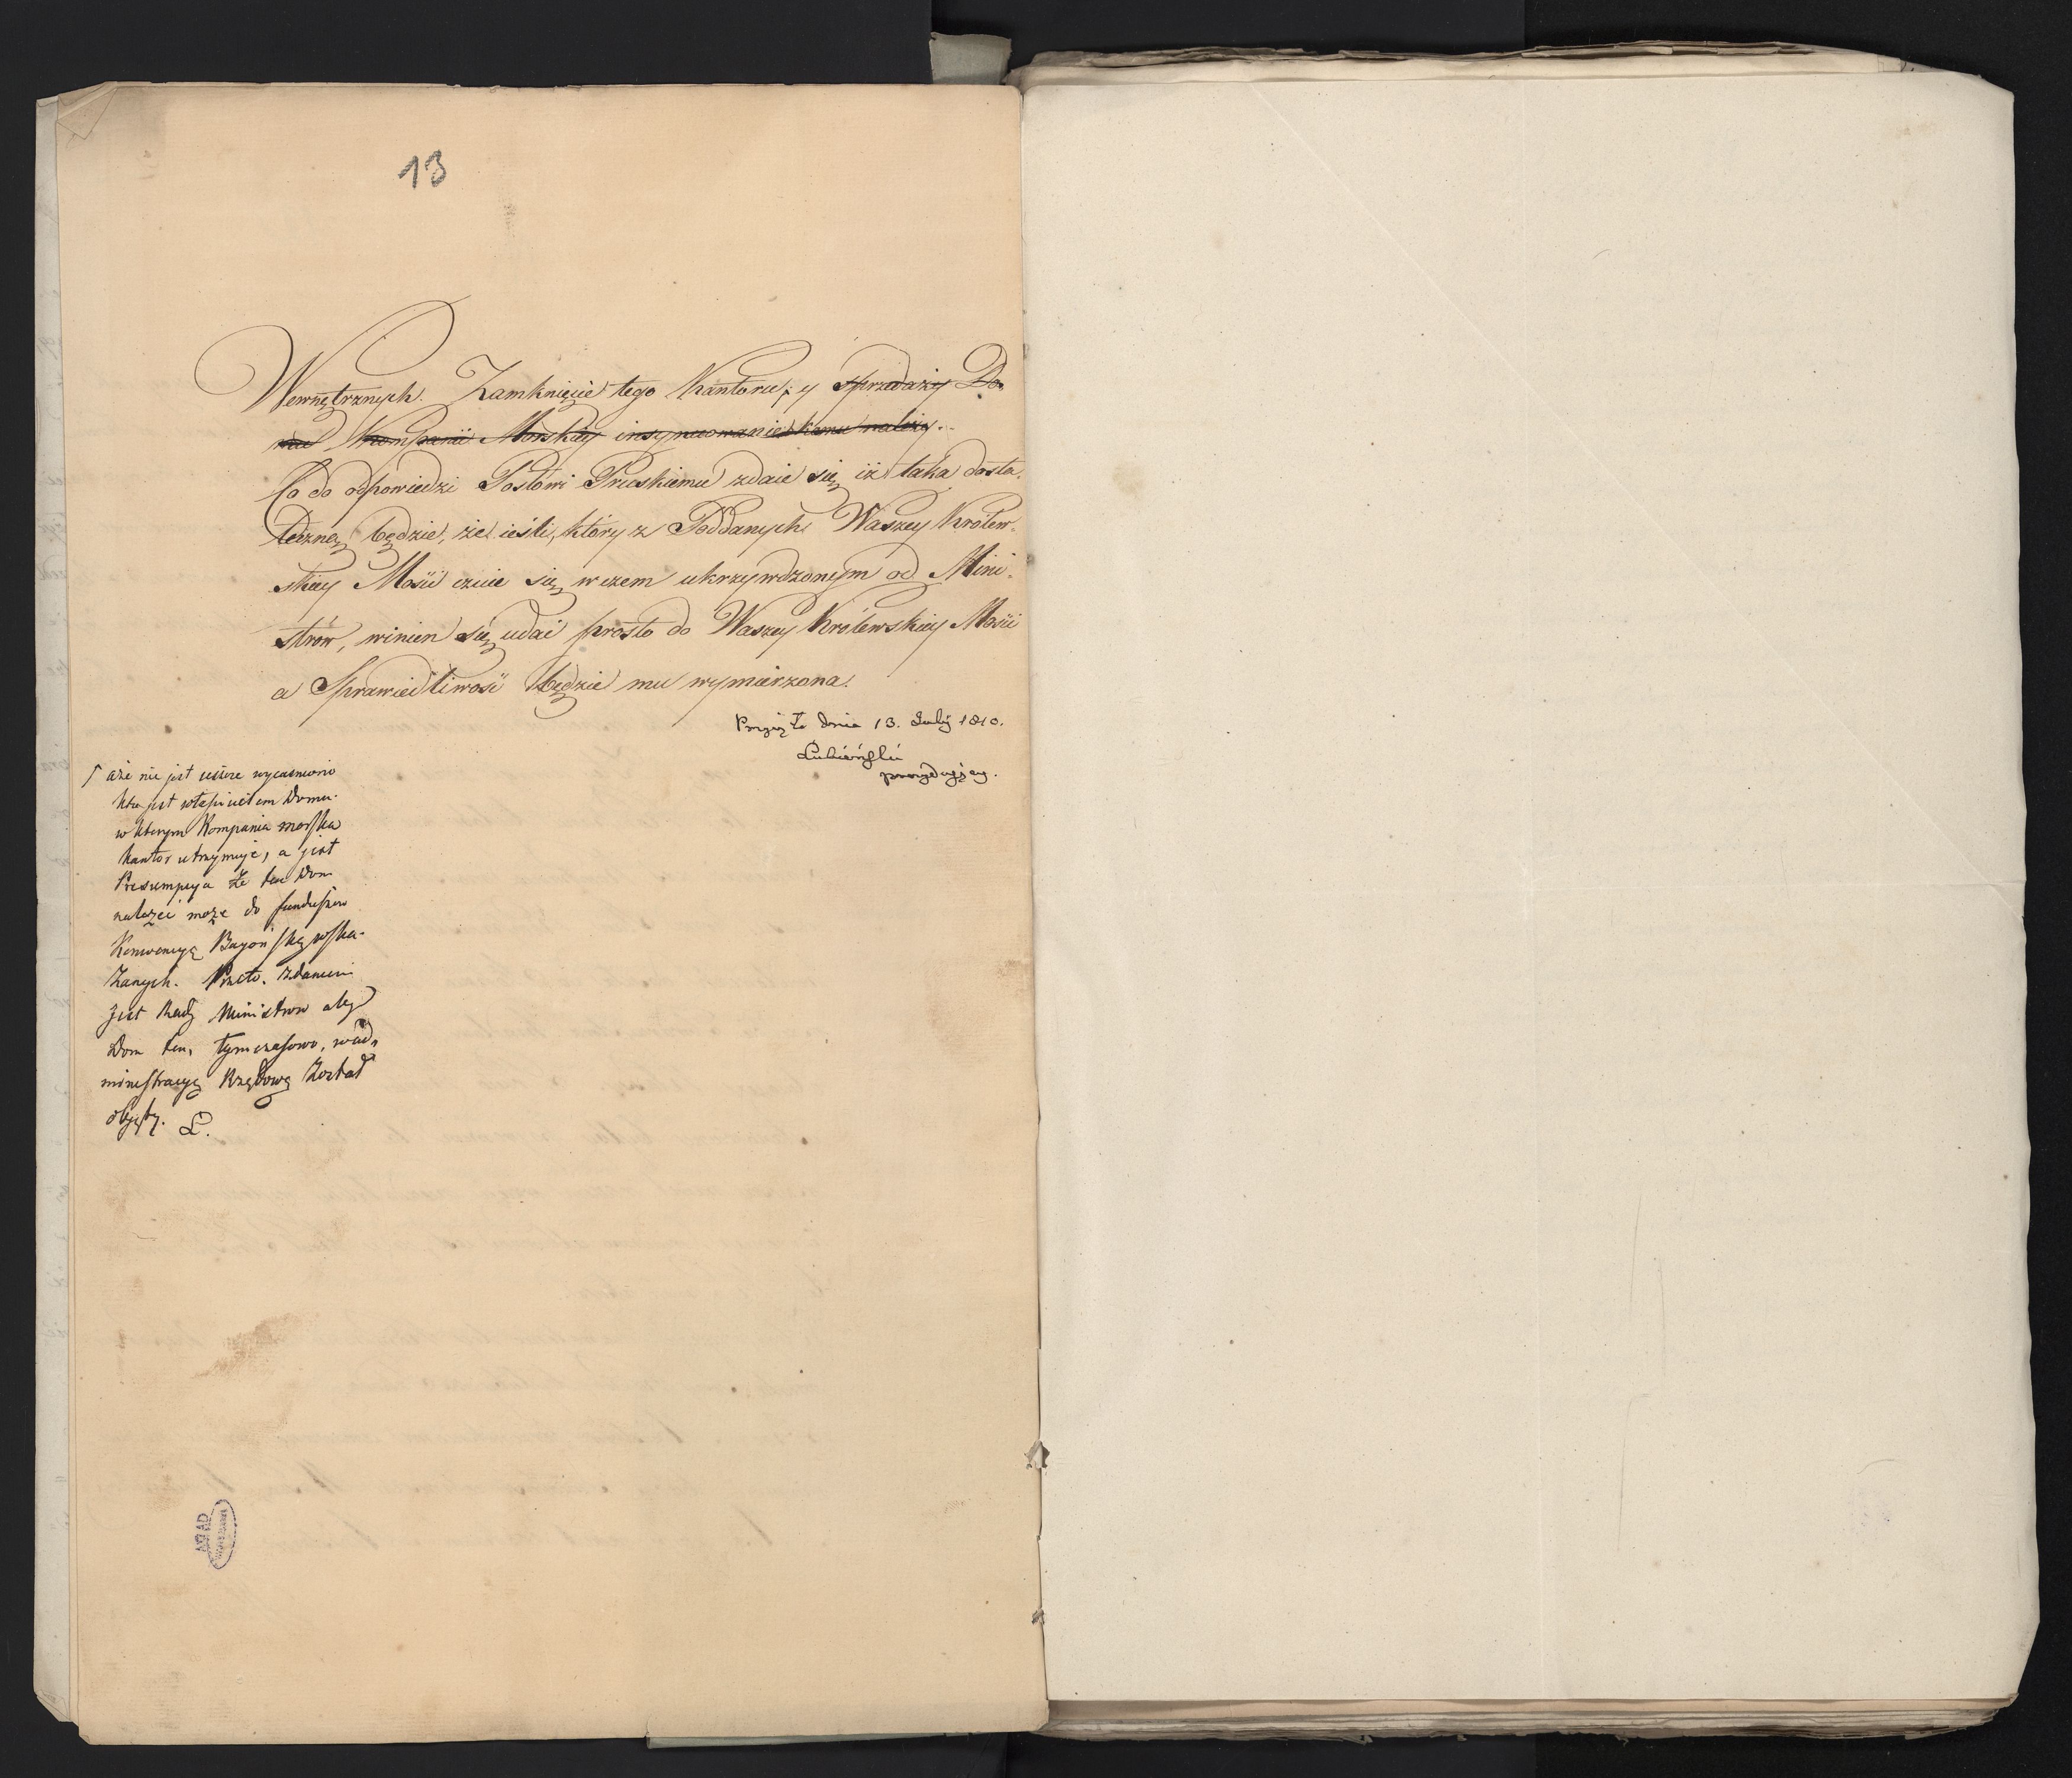 13
Wewnętrznych. Zamknięcie tego Kantoru, y sprzedaży Do-
mu Kompanii Morskiey insynuowanie komu należy.
Co do odpowiedzi Posłowi Pruskiemu zdaie się iż taka dosta-
teczną będzie, że ieśli, który z Poddanych Waszey Królew-
skiey Mości czuie się w czem ukrzywdzonym od Mini-
strów, winien się udać prosto do Waszey Królewskiey Mości
a Sprawiedliwość będzie mu wymierzona.
Przyięto dnia 13. July 1810.
Łubieński
prezyduiący.
aże nie jest ieszcze wyiasniono
kto jest właścicielem Domu
w którym Kompania morska
Kantor utrzymuje, a jest
Presumpcya że ten Dom
należeć może do funduszow
Konwencyą Bayońską wska-
zanych. Przeto, zdaniem
jest Rady Ministrow aby
Dom ten, tymczasowo, w ad-
ministracyą Rządową Został
objęty. Ł.
AGAD